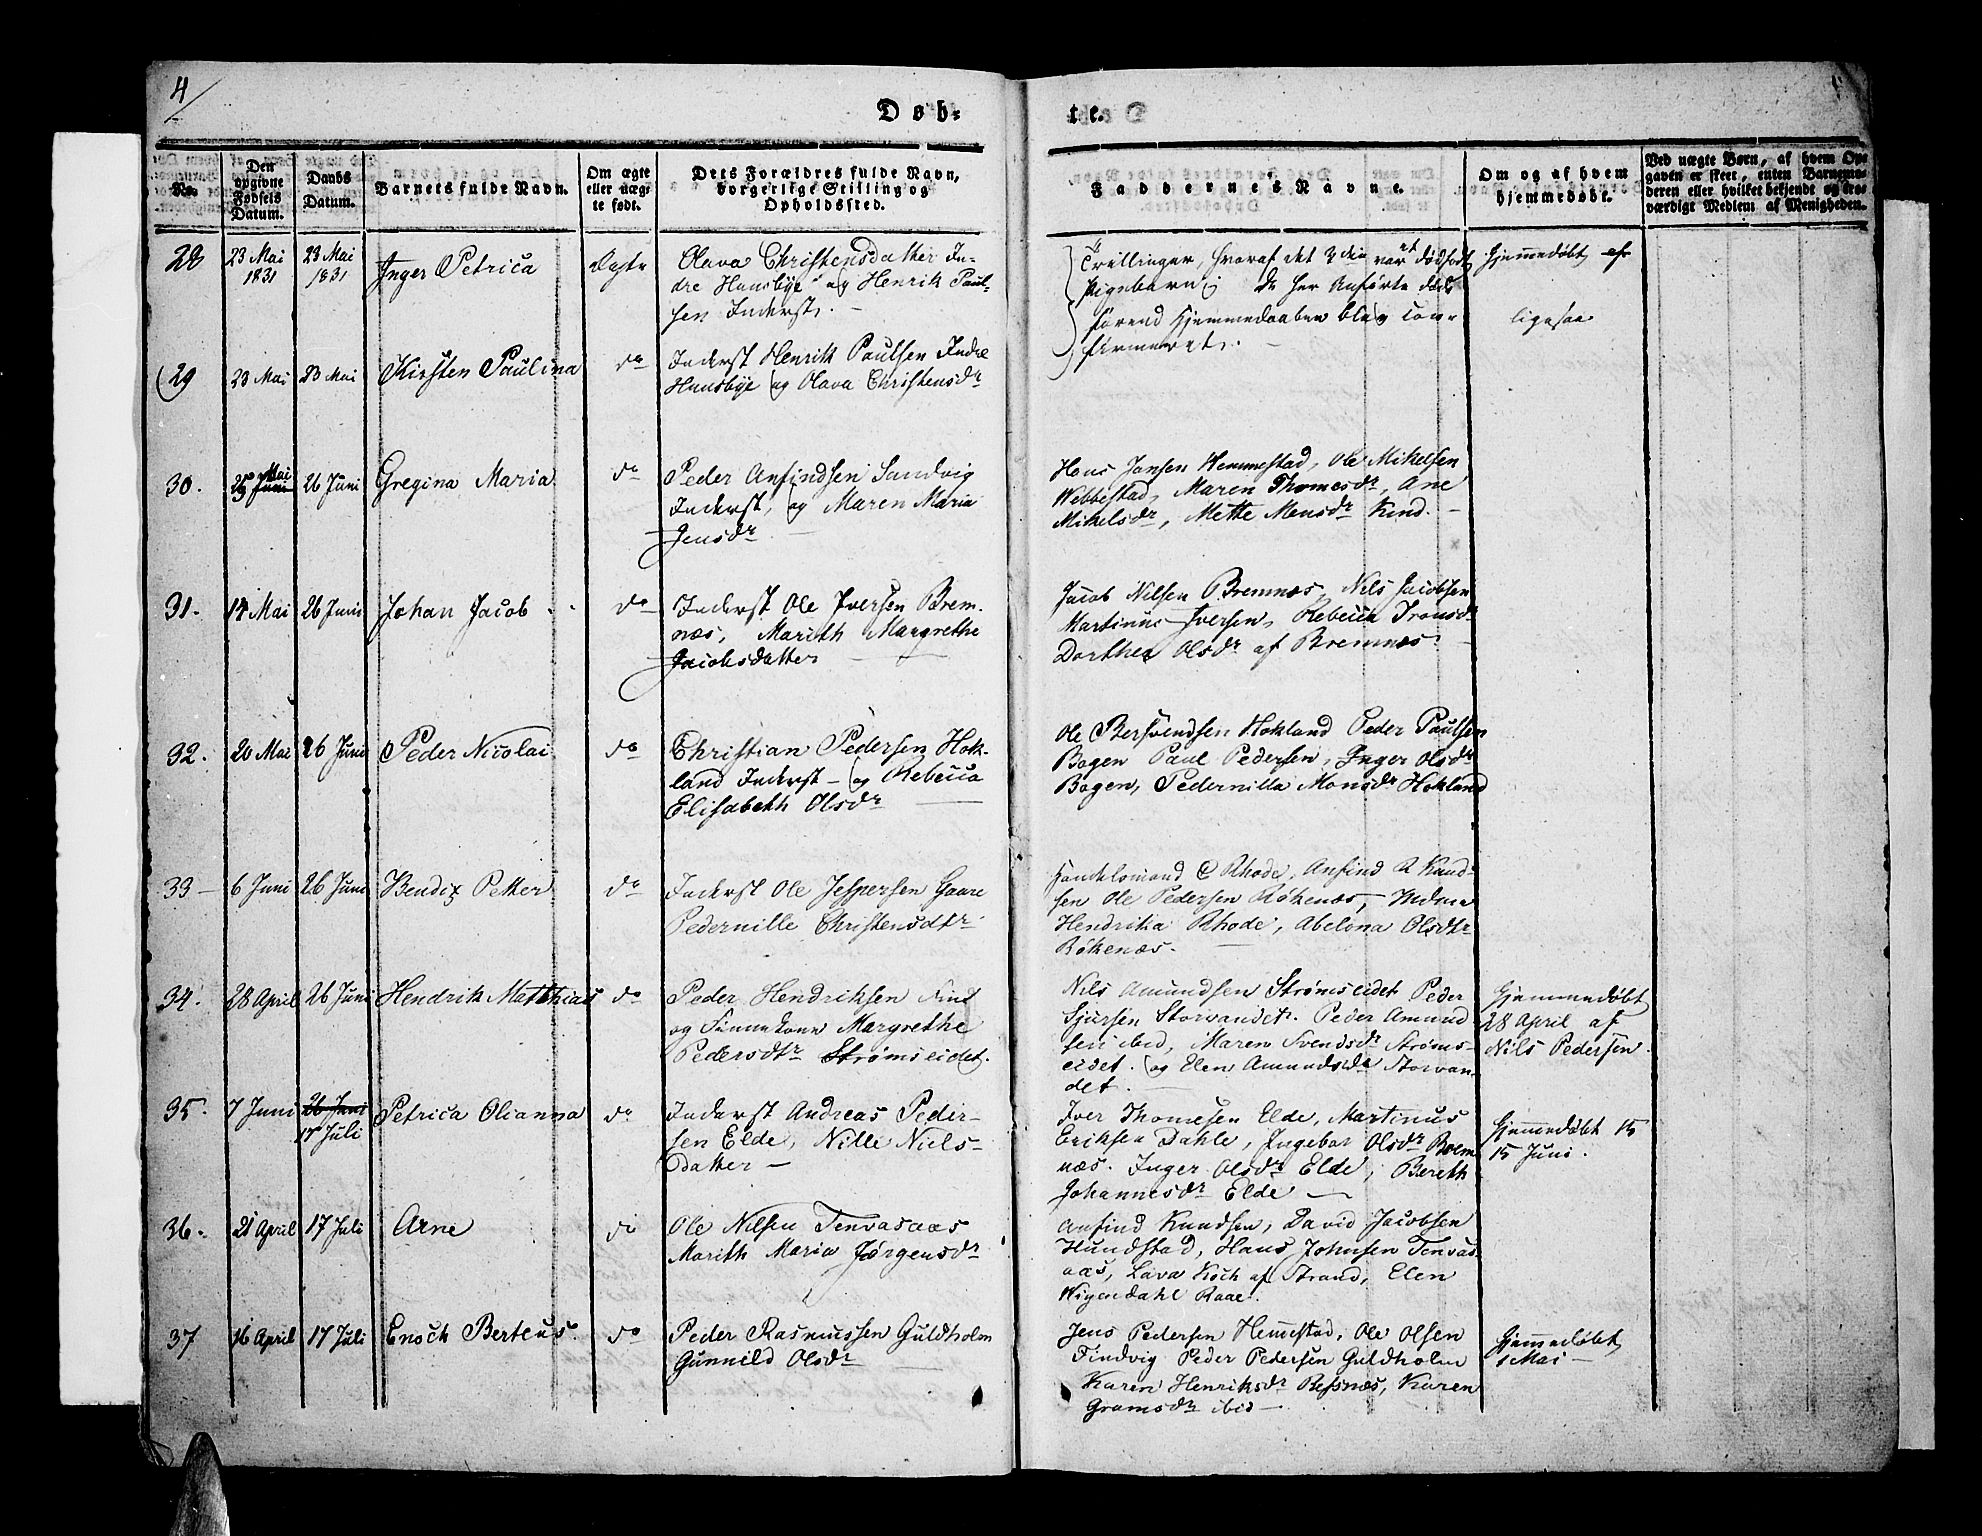 4
Døb-
te.
No.
Den opgivne Fødsels Datum.
Daabs Datum.
Barnets fulde Navn.
Om ægte eller uægte født.
Dets Forældres fulde Navn, borgerlige Stilling og Opholdssted.
Faddernes Navne.
Om og af hvem hjemmedøbt.
Ved uægte Børn, af hvem Opgaven er skeet, enten Barnemoderen eller hvilket bekjendt og troværdigt Medlem af Menigheden.
28
23 Mai
1831
23 Mai
1831
Inger Petrica
Ægte
Olava Christensdatter In-
dre Hunsbye og Henrik Paul-
sen Inderst. -
Trillinger, hvoraf det 3die var et dødfødt
Pigebarn, de her Anførte døde
førend Hjemmedaaben blev Con-
firmeret. -
Hjemmedøbt af
ligesaa
29
23 Mai
23 Mai
Kirsten Paulina
do
Inderst Henrik Paulsen Indre
Hunsbye og Olava Christensdr
30.
Mai
29 Juni
26 Juni
Gregina Maria
do
Peder Anfindsen Sandvig
Inderst, og Maren Maria
Jensdr
Hans Jansen Hemmestad, Ole Mikelsen
Webbestad, Maren Thomesdr, Ane
Mikelsdr, Mette Monsdr Kind. -
31.
14 Mai
26 Juni
Johan Jacob
do
Inderst Ole Iversen Brem-
næs, Marith Margrethe
Jacobsdatter
Jacob Nilsen Bremnæs, Nils Jacobsen
Martinus Iversen, Rebecca Tronsdr
Dorthea Olsdr af Bremnæs.
32.
20 Mai
26 Juni
Peder Nicolai
do
Christian Pedersen Hok-
land Inderst - og Rebecca
Elisabeth Olsdr
Ole Bersvendsen Hokland Peder Paulsen
Bogen Paul Pedersen, Inger Olsdr
Bogen, Pedernilla Monsdr Hokland
33 -
6 Juni
26 Juni
Bendix Petter
do
Inderst Ole Jespersen Gaare
Pedernille Christensdtr
Handelsmand C Rhode, Anfind R Knud-
sen Ole Pedersen Røkenæs,
Hendrika Rhode, Abelona Olsdtr
Røkenæs.
34.
28 April
26 Juni
Hendrik Matthias
do
Peder Hendriksen Find
og Finnekone Margrethe
Pedersdtr Strømseidet.
Nils Amundsen Strømseidet Peder
Sjursen Storvandet. Peder Amund
sen ibid, Maren Svendsdr Strøms-
eidet. og Elen Amundsdr Storvan-
det.
Hjemmedøbt
28 April af
Nils Pedersen.
35.
7 Juni
26 Juni
17 Juli
Petrica Olianna
do
Inderst Andreas Peder-
sen Elde, Nille Niels-
datter -
Iver Thomesen Elde, Martinus
Eriksen Dahle, Ingebor Olsdr Brem
næs. Inger Olsdr Elde, Bereth
Johannesdr Elde -
Hjemmedøbt 15
15 Juni.
36.
21 April
17 Juli
Arne
do
Ole Nilsen Tenvasaas
Marith Maria Jørgensdr
Anfind Knudsen, David Jacobsen
Hundstad, Hans Johnsen Tenvas
aas, Lava Koch af Strand, Elen
Wigendahl Raae.
37
16 April
17 Juli
Enoch Berteus.
do
Peder Rasmussen Guldholm
Gunnild Olsdr
Jens Pedersen Hemestad, Ole Olsen
Findvig Peder Pedersen Guldholm
Karen Henriksdr Refsnæs, Karen
Gramsdr ibid -
Hjemmedøbt
1 Mai -